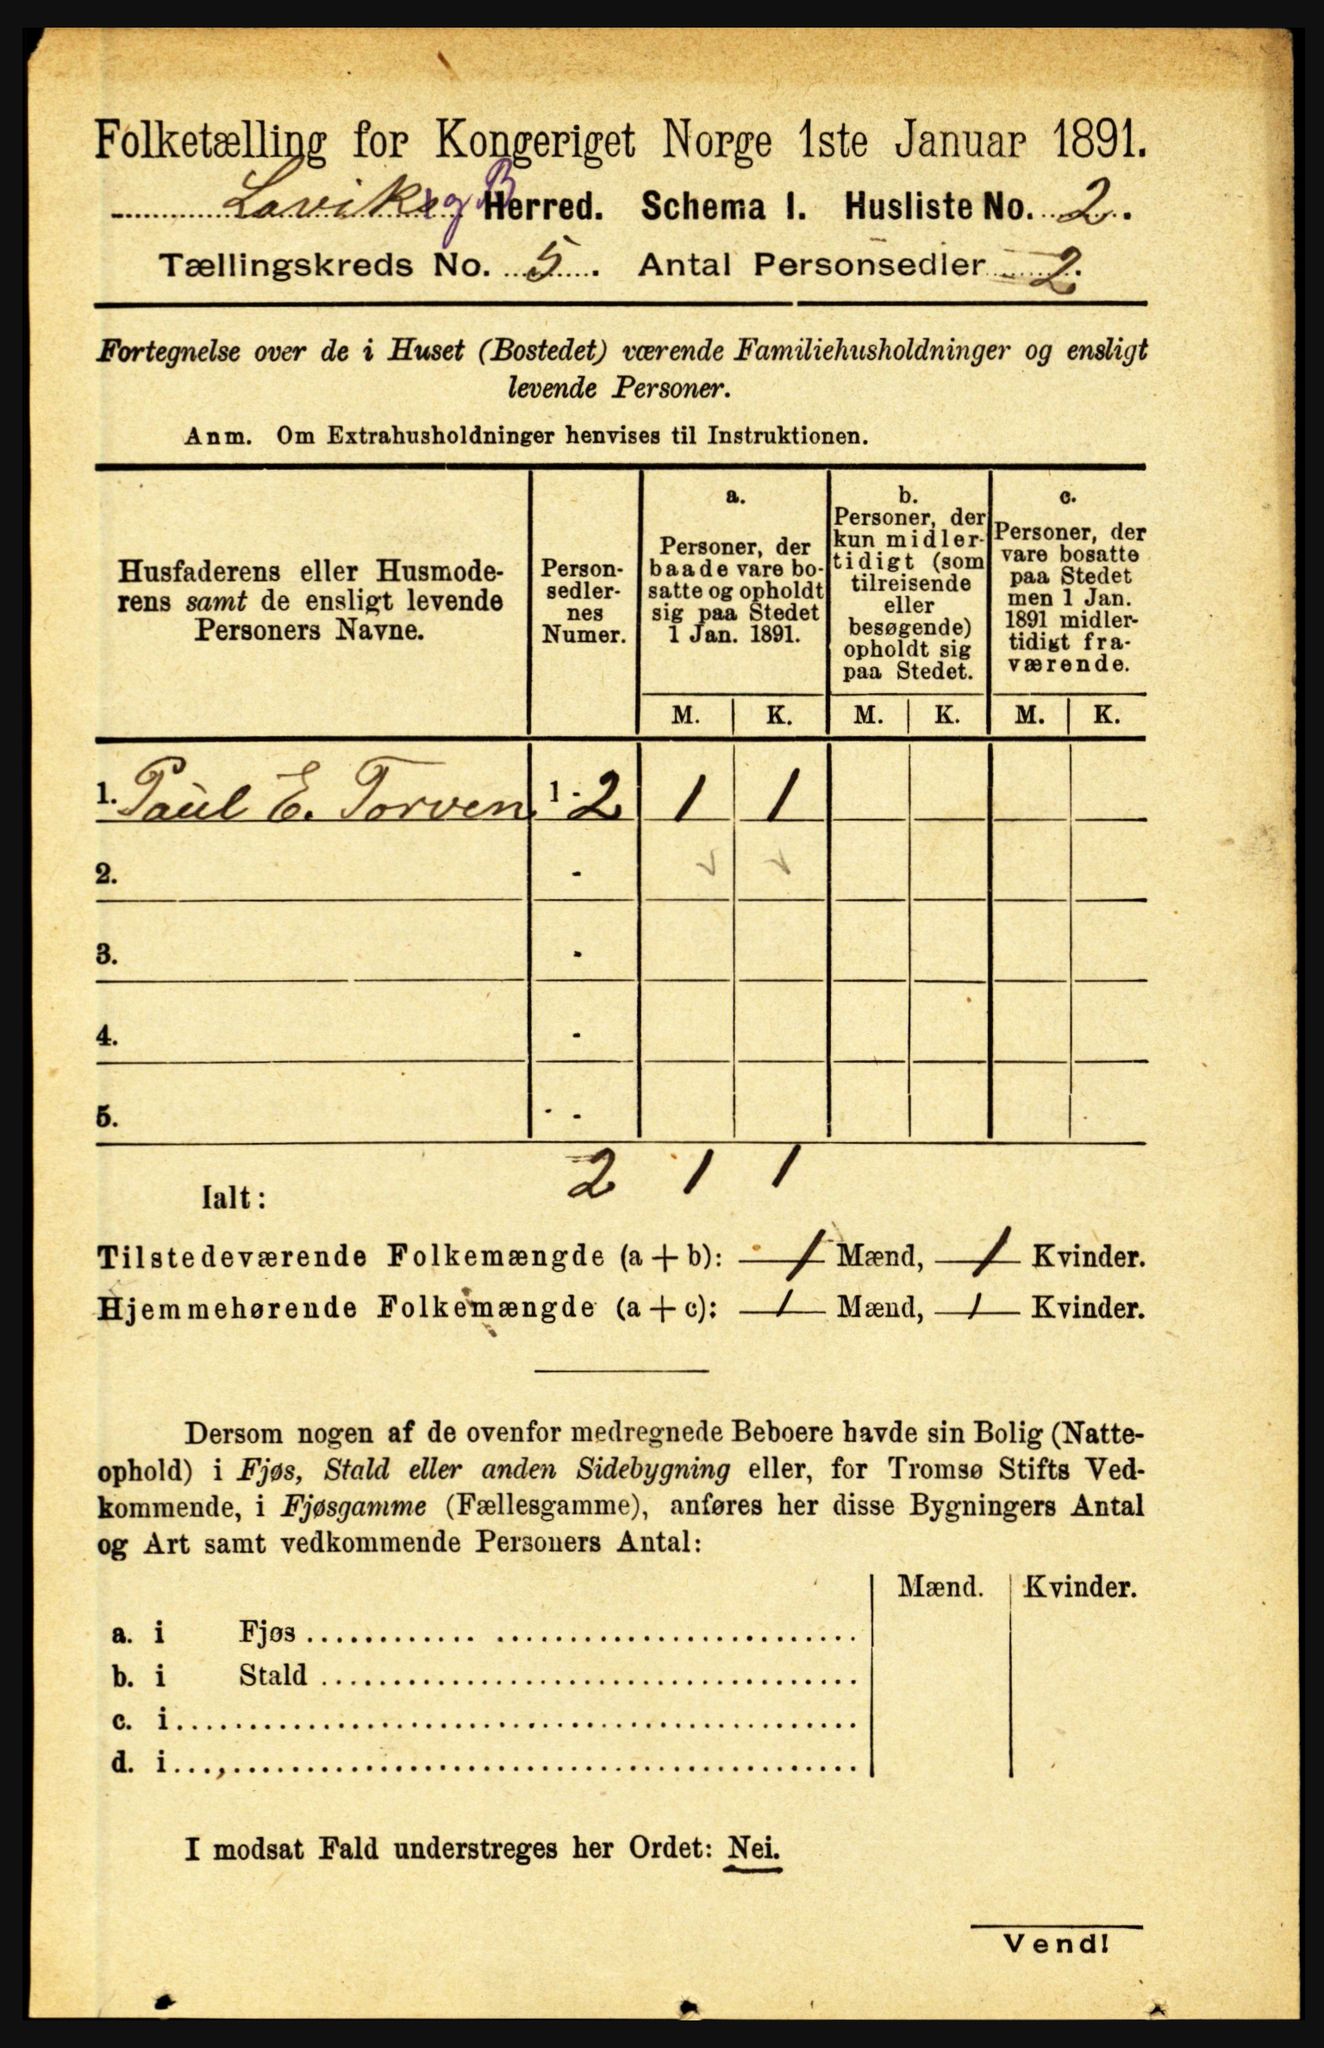 Folketælling for Kongeriget Norge 1ste Januar 1891.
Lavik og B Herred. Schema I. Husliste No. 2.
Tællingskreds No. 5. Antal Personsedler 2.
Fortegnelse over de i Huset (Bostedet) værende Familiehusholdninger og ensligt
levende Personer.
Anm. Om Extrahusholdninger henvises til Instruktionen.
Husfaderens eller Husmode-
rens samt de ensligt levende
Personers Navne.
Person-
sedler-
nes
Numer.
a.
Personer, der
baade vare bo-
satte og opholdt
sig paa Stedet
1 Jan. 1891.
b.
Personer, der
kun midler-
tidigt (som
tilreisende
eller
besøgende)
opholdt sig
paa Stedet.
c.
Personer, der
vare bosatte
paa Stedet
men 1 Jan.
1891 midler-
tidigt fra-
værende.
M. K. M. K. M. K.
1. Paul E. Torven 1 - 2 1 1
2. -
3. -
4. -
5. -
Ialt: 2 1 1
Tilstedeværende Folkemængde (a + b): 1 Mænd, 1 Kvinder.
Hjemmehørende Folkemængde (a + c): 1 Mænd, 1 Kvinder.
Dersom nogen af de ovenfor medregnede Beboere havde sin Bolig (Natte-
ophold) i Fjøs, Stald eller anden Sidebygning eller, for Tromsø Stifts Ved-
kommende, i Fjøsgamme (Fællesgamme), anføres her disse Bygningers Antal
og Art samt vedkommende Personers Antal:
Mænd. Kvinder.
a. i Fjøs
b. i Stald
c. i
d. i
I modsat Fald understreges her Ordet: Nei.
Vend!